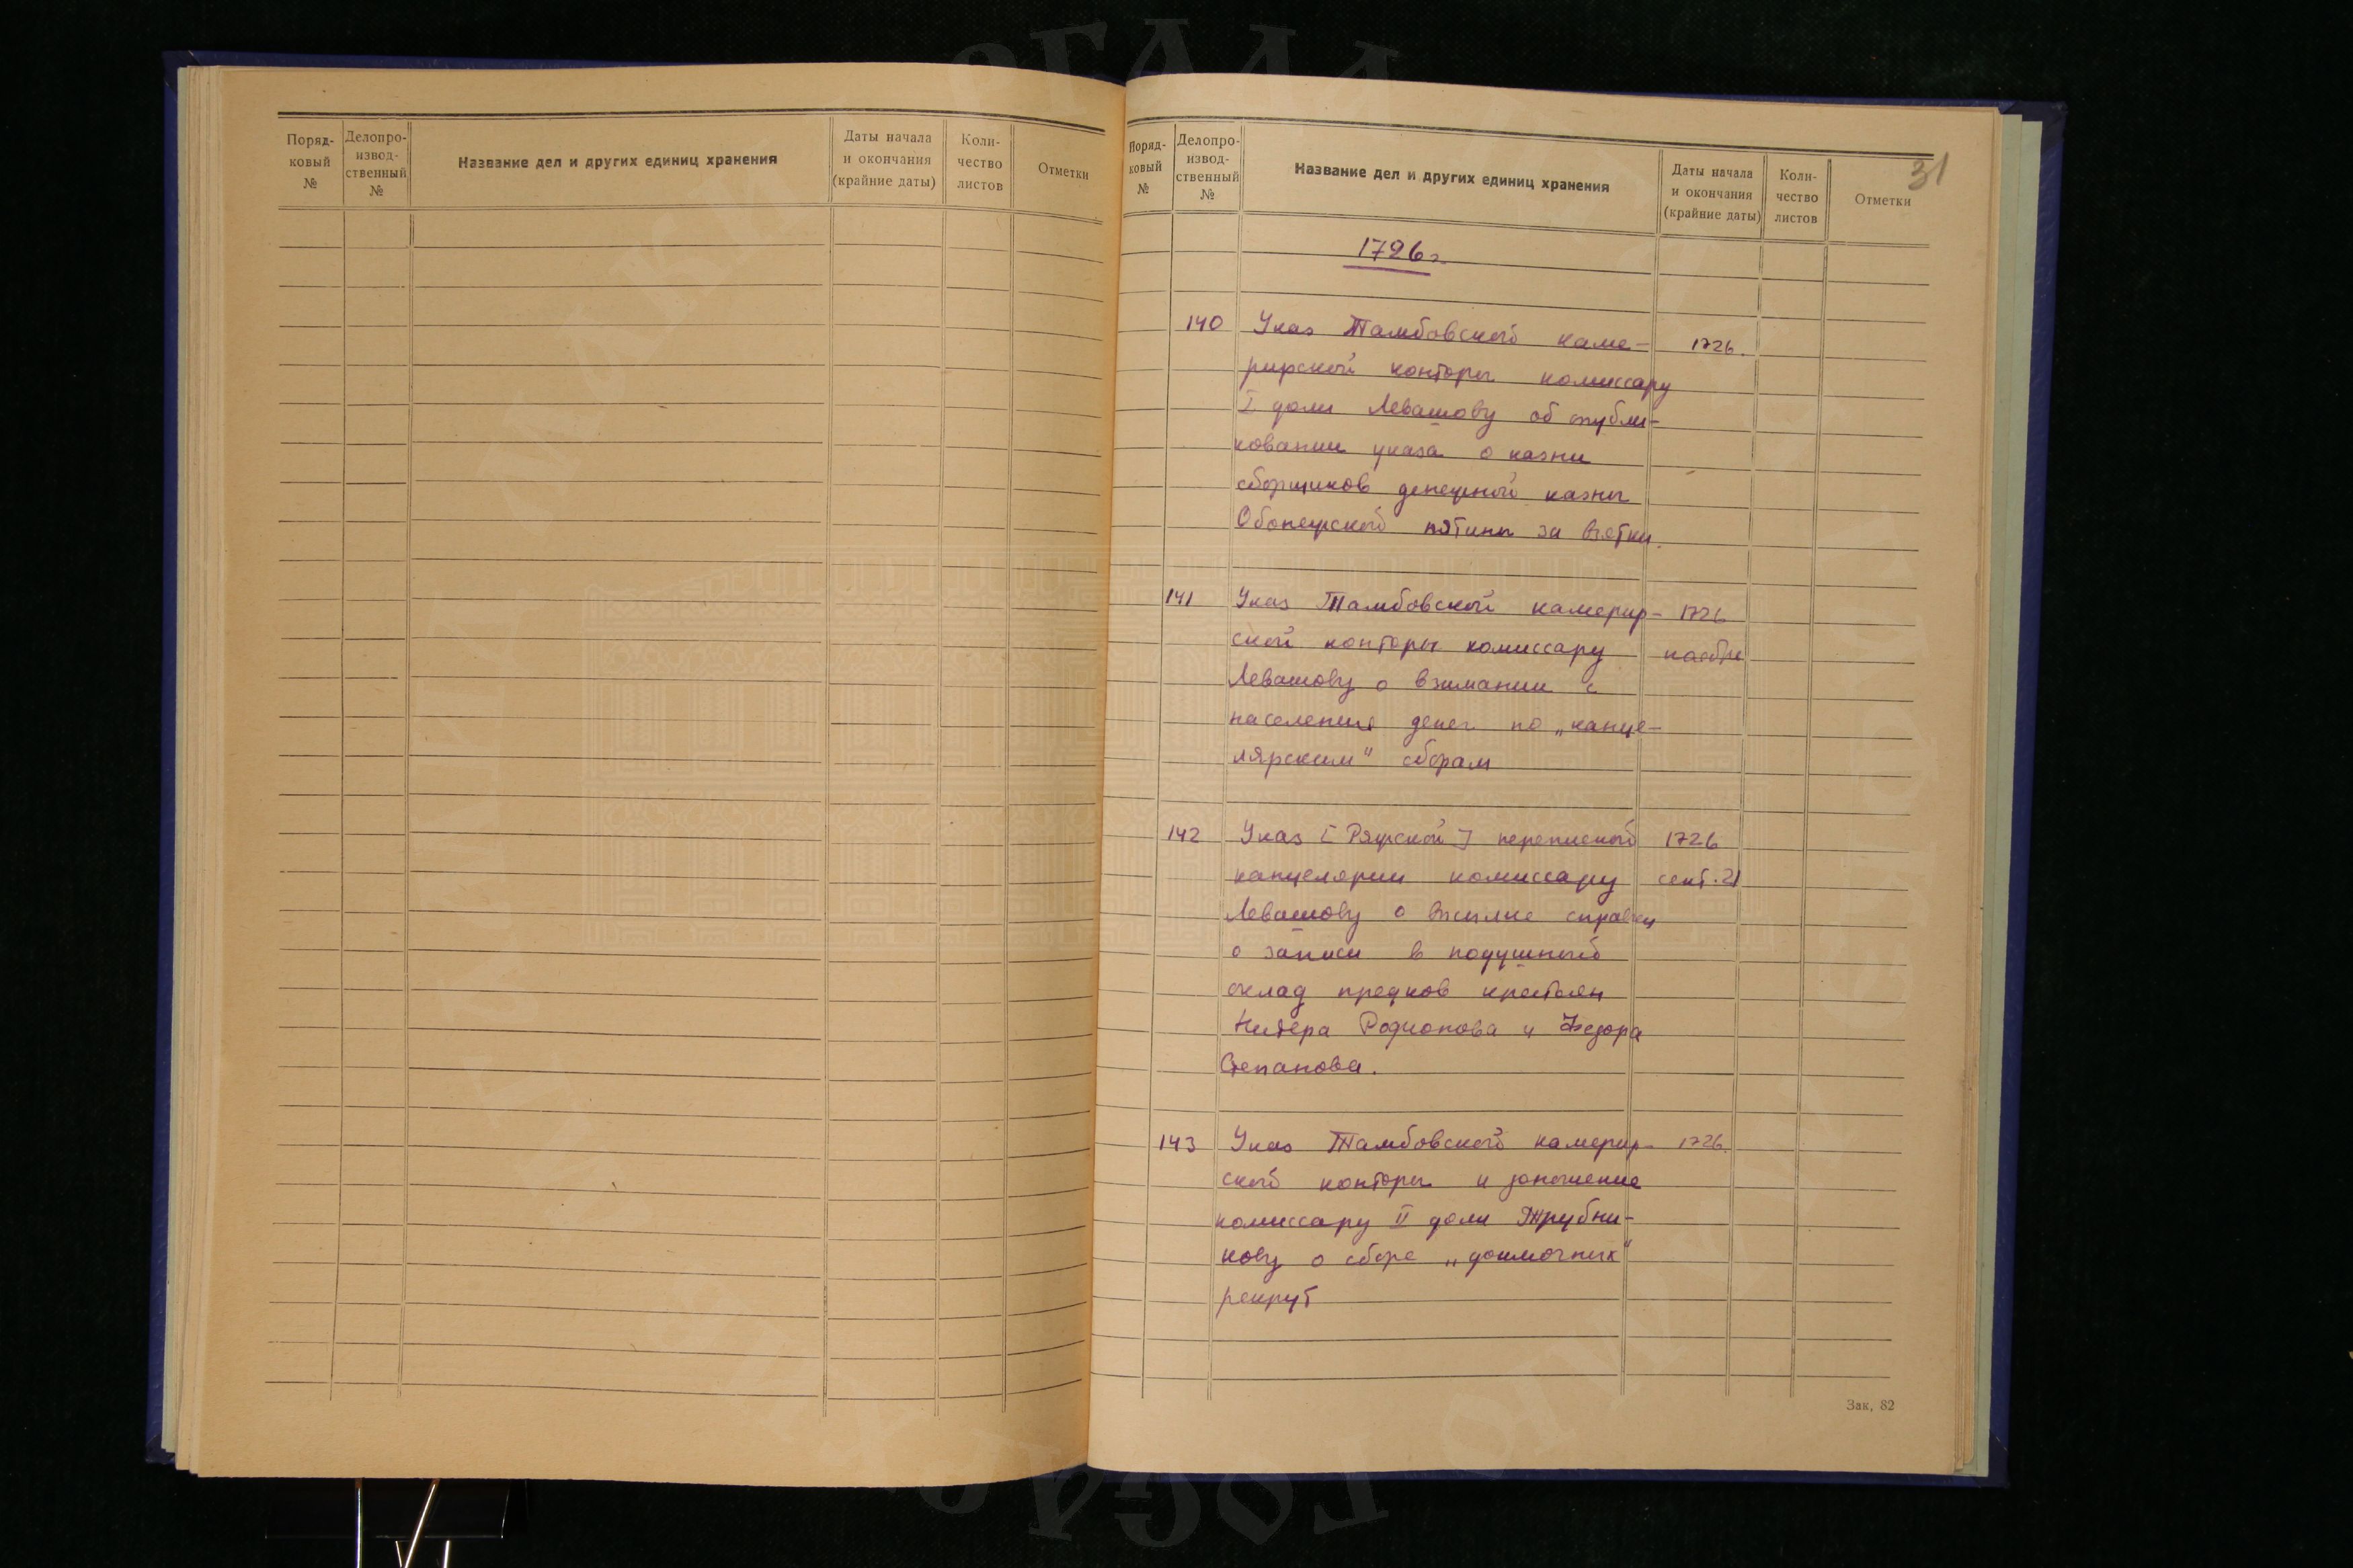 Поряд-
ковый
№
Делопро-
извод-
ственный
№
Название дел и других единиц хранения
Даты начала
и окончания
(крайние даты)
Коли-
чество
листов
Отметки
Поряд-
ковый
№
Делопро-
извод-
ственный
№
Название дел и других единиц хранения
Даты начала
и окончания
(крайние даты)
Коли-
чество
листов
Отметки
31
1726 г.
140 Указ Тамбовской каме- 1726.
рирской конторы комиссару
I доли Левашову об опубли-
ковании указа о казни
сборщиков денежной казны
Обонежской пятины за взятки.
141 Указ Тамбовской камерир- 1726
ской конторы комиссару ноябрь
Левашову о взимании с
населения денег по „канце-
лярским" сборам
142 Указ [Ряжской] переписной 1726
канцелярии комиссару сент. 21
Левашову о высылке справки
о записи в подушный
оклад предков крестьян
Родионова и Федора
Степанова.
143 Указ Тамбовской камерир- 1726.
ской конторы и доношение
комиссару II доли Трубни-
кову о сборе „доимочных"
рекрут
Зак. 82